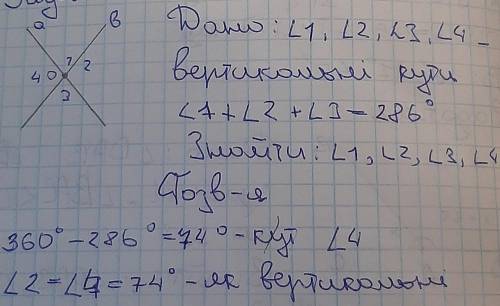 a
в
1
4 O 2
3
Дано: ∠1, ∠2, ∠3, ∠4 –
вертикальні кути
∠1 + ∠2 + ∠3 = 286°
Знайти: ∠1, ∠2, ∠3, ∠4
Розв-я
360° – 286° = 74° – кут ∠4
∠2 = ∠4 = 74° – як вертикальні